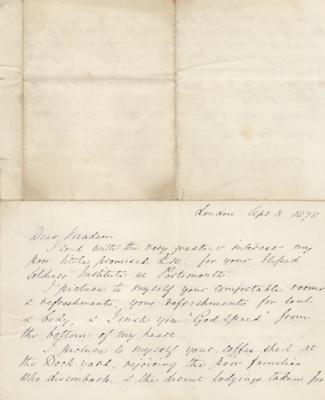 London Sept 3 1878
Dear Madam
I send with the very greatest interest my
poor little promised £10. for your blessed
Soldiers' Institute at Portsmouth.
I picture to myself your comfortable rooms
& refreshments, your refreshments for soul
& body, & I wish you "God speed" from
the bottom of my heart.
I picture to myself your coffee shed at
the Dock-yard, rejoicing the poor families
who disembark, & the decent lodgings taken for